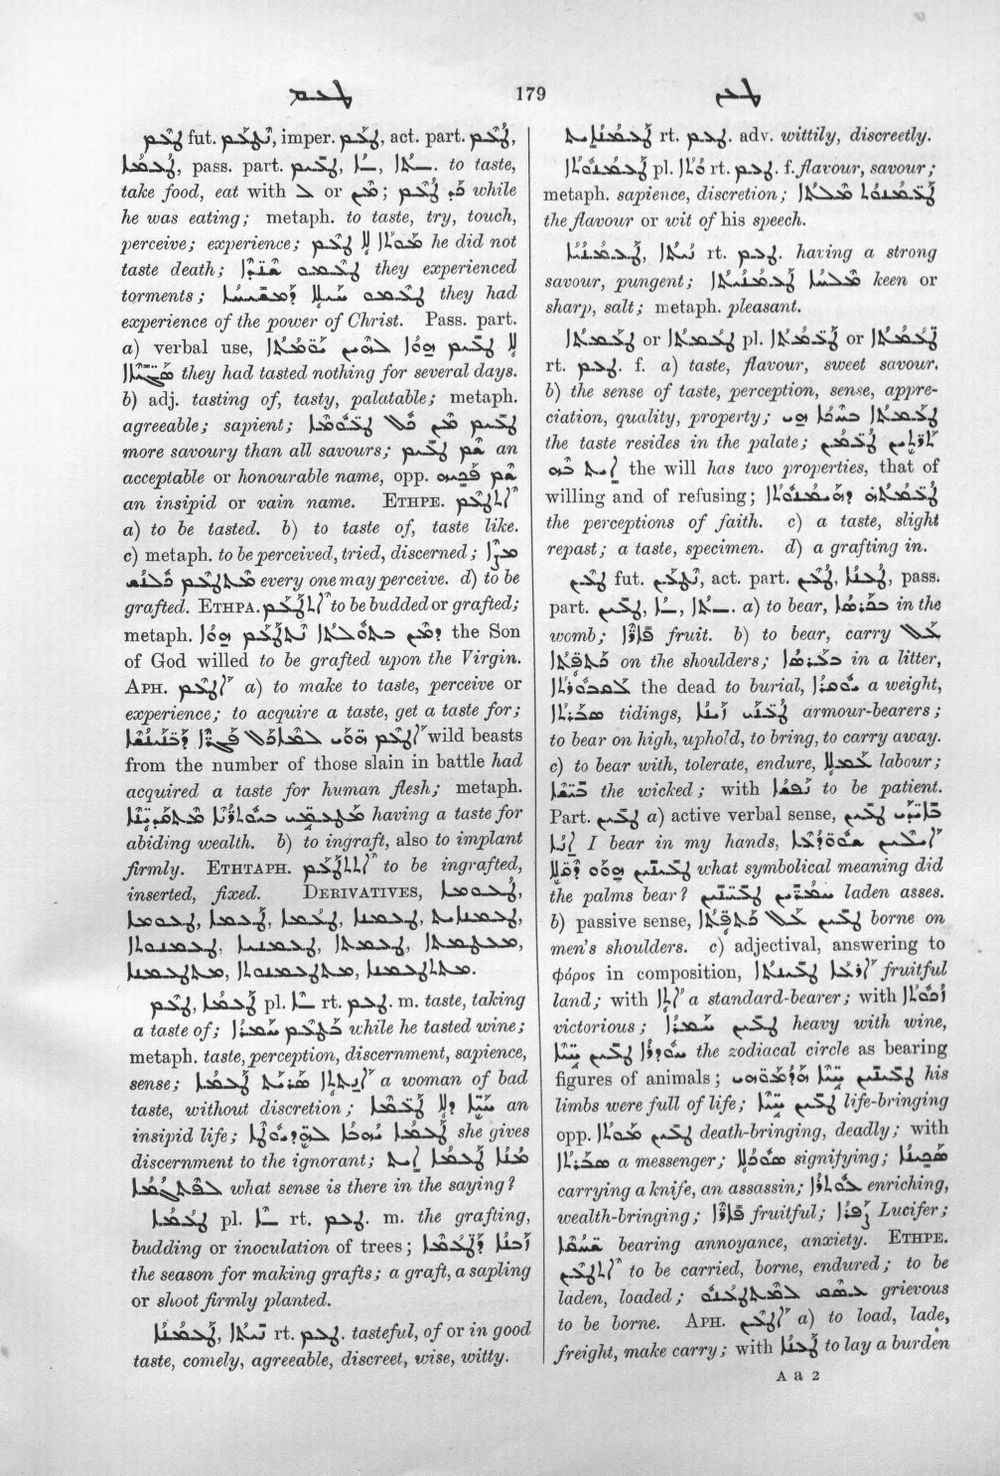 ܛܥܡ 179 ܛܥܢ
ܛܥܡ fut. ܢܛܥܡ, imper. ܛܥܡ, act. part. ܛܥܡ,
ܛܥܡܐ, pass. part. ܛܥܝܡ, ܐ—, ܬܐ—. to taste,
take food, eat with ܠ or ܡܢ; ܟܕ ܛܥܡ while
he was eating; metaph. to taste, try, touch,
perceive; experience; ܡܘܬܐ ܠܐ ܛܥܡ he did not
taste death; ܛܥܡܘ they experienced
torments; ܛܥܡܘ ܚܝܠܐ ܕܡܫܝܚܐ they had
experience of the power of Christ. Pass. part.
a) verbal use, ܠܐ ܛܥܝܡ ܗܘܐ ܠܗܘܢ ܝܘܡܬܐ
ܣܓܝܐܐ they had tasted nothing for several days.
b) adj. tasting of, tasty, palatable; metaph.
agreeable; sapient; ܛܥܝܡ ܡܢ ܟܠ ܛܥܘܡܐ
more savoury than all savours; ܫܡ ܛܥܝܡ an
acceptable or honourable name, opp. ܫܡ ܦܟܝܗ
an insipid or vain name. ETHPE. ܐܬܛܥܡ
a) to be tasted. b) to taste of, taste like.
c) metaph. to be perceived, tried, discerned; ܡܨܐ
ܡܬܛܥܡ ܟܠܢܫ every one may perceive. d) to be
grafted. ETHPA. ܐܬܛܥܡ to be budded or grafted;
metaph. ܕܡܢ ܒܬܘܠܬܐ ܢܬܛܥܡ ܗܘܐ the Son
of God willed to be grafted upon the Virgin.
APH. ܐܛܥܡ a) to make to taste, perceive or
experience; to acquire a taste, get a taste for;
ܐܛܥܡ ܗܘܘ wild beasts
from the number of those slain in battle had
acquired a taste for human flesh; metaph.
having a taste for
abiding wealth. b) to ingraft, also to implant
firmly. ETHTAPH. ܐܬܬܛܥܡ to be ingrafted,
inserted, fixed. DERIVATIVES, ܛܥܘܡܐ,
ܛܥܘܡܐ, ܛܥܡܐ, ܛܥܡܐ, ܛܥܡܢܐ, ܛܥܡܢܐܝܬ,
ܛܥܡܢܘܬܐ, ܛܥܡܢܝܐ, ܛܥܡܬܐ, ܡܛܥܡܬܐ,
ܡܬܛܥܡܢܐ, ܡܬܛܥܡܢܘܬܐ, ܡܬܬܛܥܡܢܐ.
ܛܥܡ, ܛܥܡܐ pl. ܐ— rt. ܛܥܡ. m. taste, taking
a taste of; ܒܛܥܡ ܚܡܪܐ while he tasted wine;
metaph. taste, perception, discernment, sapience,
sense; ܐܢܬܬܐ ܣܪܝܬ ܛܥܡܐ a woman of bad
taste, without discretion; ܚܝܐ ܕܠܐ ܛܥܡܐ an
insipid life; ܛܥܡܐ ܝܗܒܐ ܠܗܕܝܘܛܐ she gives
discernment to the ignorant; ܡܢܐ ܛܥܡܐ ܐܝܬ
ܠܦܬܓܡܐ what sense is there in the saying?
ܛܥܡܐ pl. ܐ— rt. ܛܥܡ. m. the grafting,
budding or inoculation of trees; ܙܒܢܐ ܕܛܥܡܐ
the season for making grafts; a graft, a sapling
or shoot firmly planted.
ܛܥܡܢܐ, ܢܝܬܐ rt. ܛܥܡ. tasteful, of or in good
taste, comely, agreeable, discreet, wise, witty.
ܛܥܡܢܐܝܬ rt. ܛܥܡ. adv. wittily, discreetly.
ܛܥܡܢܘܬܐ pl. ܘܬܐ rt. ܛܥܡ. f. flavour, savour;
metaph. sapience, discretion; ܛܥܡܢܘܬ ܡܠܬܐ
the flavour or wit of his speech.
ܛܥܡܢܝܐ, ܢܝܬܐ rt. ܛܥܡ. having a strong
savour, pungent; ܡܠܚܐ ܛܥܡܢܝܬܐ keen or
sharp, salt; metaph. pleasant.
ܛܥܡܬܐ or ܛܥܡܬܐ pl. ܛܥܡܬܐ or ܛܥܡܬܐ
rt. ܛܥܡ. f. a) taste, flavour, sweet savour.
b) the sense of taste, perception, sense, appre-
ciation, quality, property; ܛܥܡܬܐ ܒܚܟܐ ܗܝ
the taste resides in the palate; ܬܪܬܝܢ ܛܥܡܢ
ܐܝܬ ܒܗ the will has two properties, that of
willing and of refusing; ܛܥܡܬܗ ܕܗܝܡܢܘܬܐ
the perceptions of faith. c) a taste, slight
repast; a taste, specimen. d) a grafting in.
ܛܥܢ fut. ܢܛܥܢ, act. part. ܛܥܢ, ܛܥܢܐ, pass.
part. ܛܥܝܢ, ܐ—, ܬܐ—. a) to bear, ܒܟܪܣܐ in the
womb; ܦܐܪܐ fruit. b) to bear, carry ܥܠ
ܟܬܦܬܐ on the shoulders; ܒܥܪܣܐ in a litter,
ܠܩܒܘܪܬܐ the dead to burial, ܝܘܩܪܐ a weight,
ܣܒܪܬܐ tidings, ܛܥܢܝ ܙܝܢܐ armour-bearers;
to bear on high, uphold, to bring, to carry away.
c) to bear with, tolerate, endure, ܥܡܠܐ labour;
ܒܝܫܐ the wicked; with ܢܦܫܐ to be patient.
Part. ܛܥܝܢ a) active verbal sense, ܛܥܝܢ ܒܐܝܕܝ
ܐܢܐ I bear in my hands,
ܛܥܝܢܝܢ ܗܘܘ what symbolical meaning did
the palms bear? ܚܡܪܝܢ ܛܥܝܢܝܢ laden asses.
b) passive sense, ܛܥܝܢ ܥܠ ܟܬܦܬܐ borne on
men's shoulders. c) adjectival, answering to
φόρος in composition, ܐܪܥܐ ܛܥܝܢܬܐ fruitful
land; with ܐܬܐ a standard-bearer; with ܙܟܘܬܐ
victorious; ܛܥܝܢ ܚܡܪܐ heavy with wine,
ܚܘܕܪܐ ܛܥܝܢ ܚܝܘܬܐ the zodiacal circle as bearing
figures of animals; ܛܥܝܢܝܢ ܚܝܐ ܗܕܡܘܗܝ his
limbs were full of life; ܛܥܝܢ ܚܝܐ life-bringing
opp. ܛܥܝܢ ܡܘܬܐ death-bringing, deadly; with
ܣܒܪܬܐ a messenger; ܣܘܟܠܐ signifying; ܣܟܝܢܐ
carrying a knife, an assassin; ܥܘܬܪܐ enriching,
wealth-bringing; ܦܐܪܐ fruitful; ܨܦܪܐ Lucifer;
bearing annoyance, anxiety. ETHPE.
ܐܬܛܥܢ to be carried, borne, endured; to be
laden, loaded; ܥܣܩ ܠܡܬܛܥܢܘ grievous
to be borne. APH. ܐܛܥܢ a) to load, lade,
freight, make carry; with ܛܥܢܐ to lay a burden
A a 2